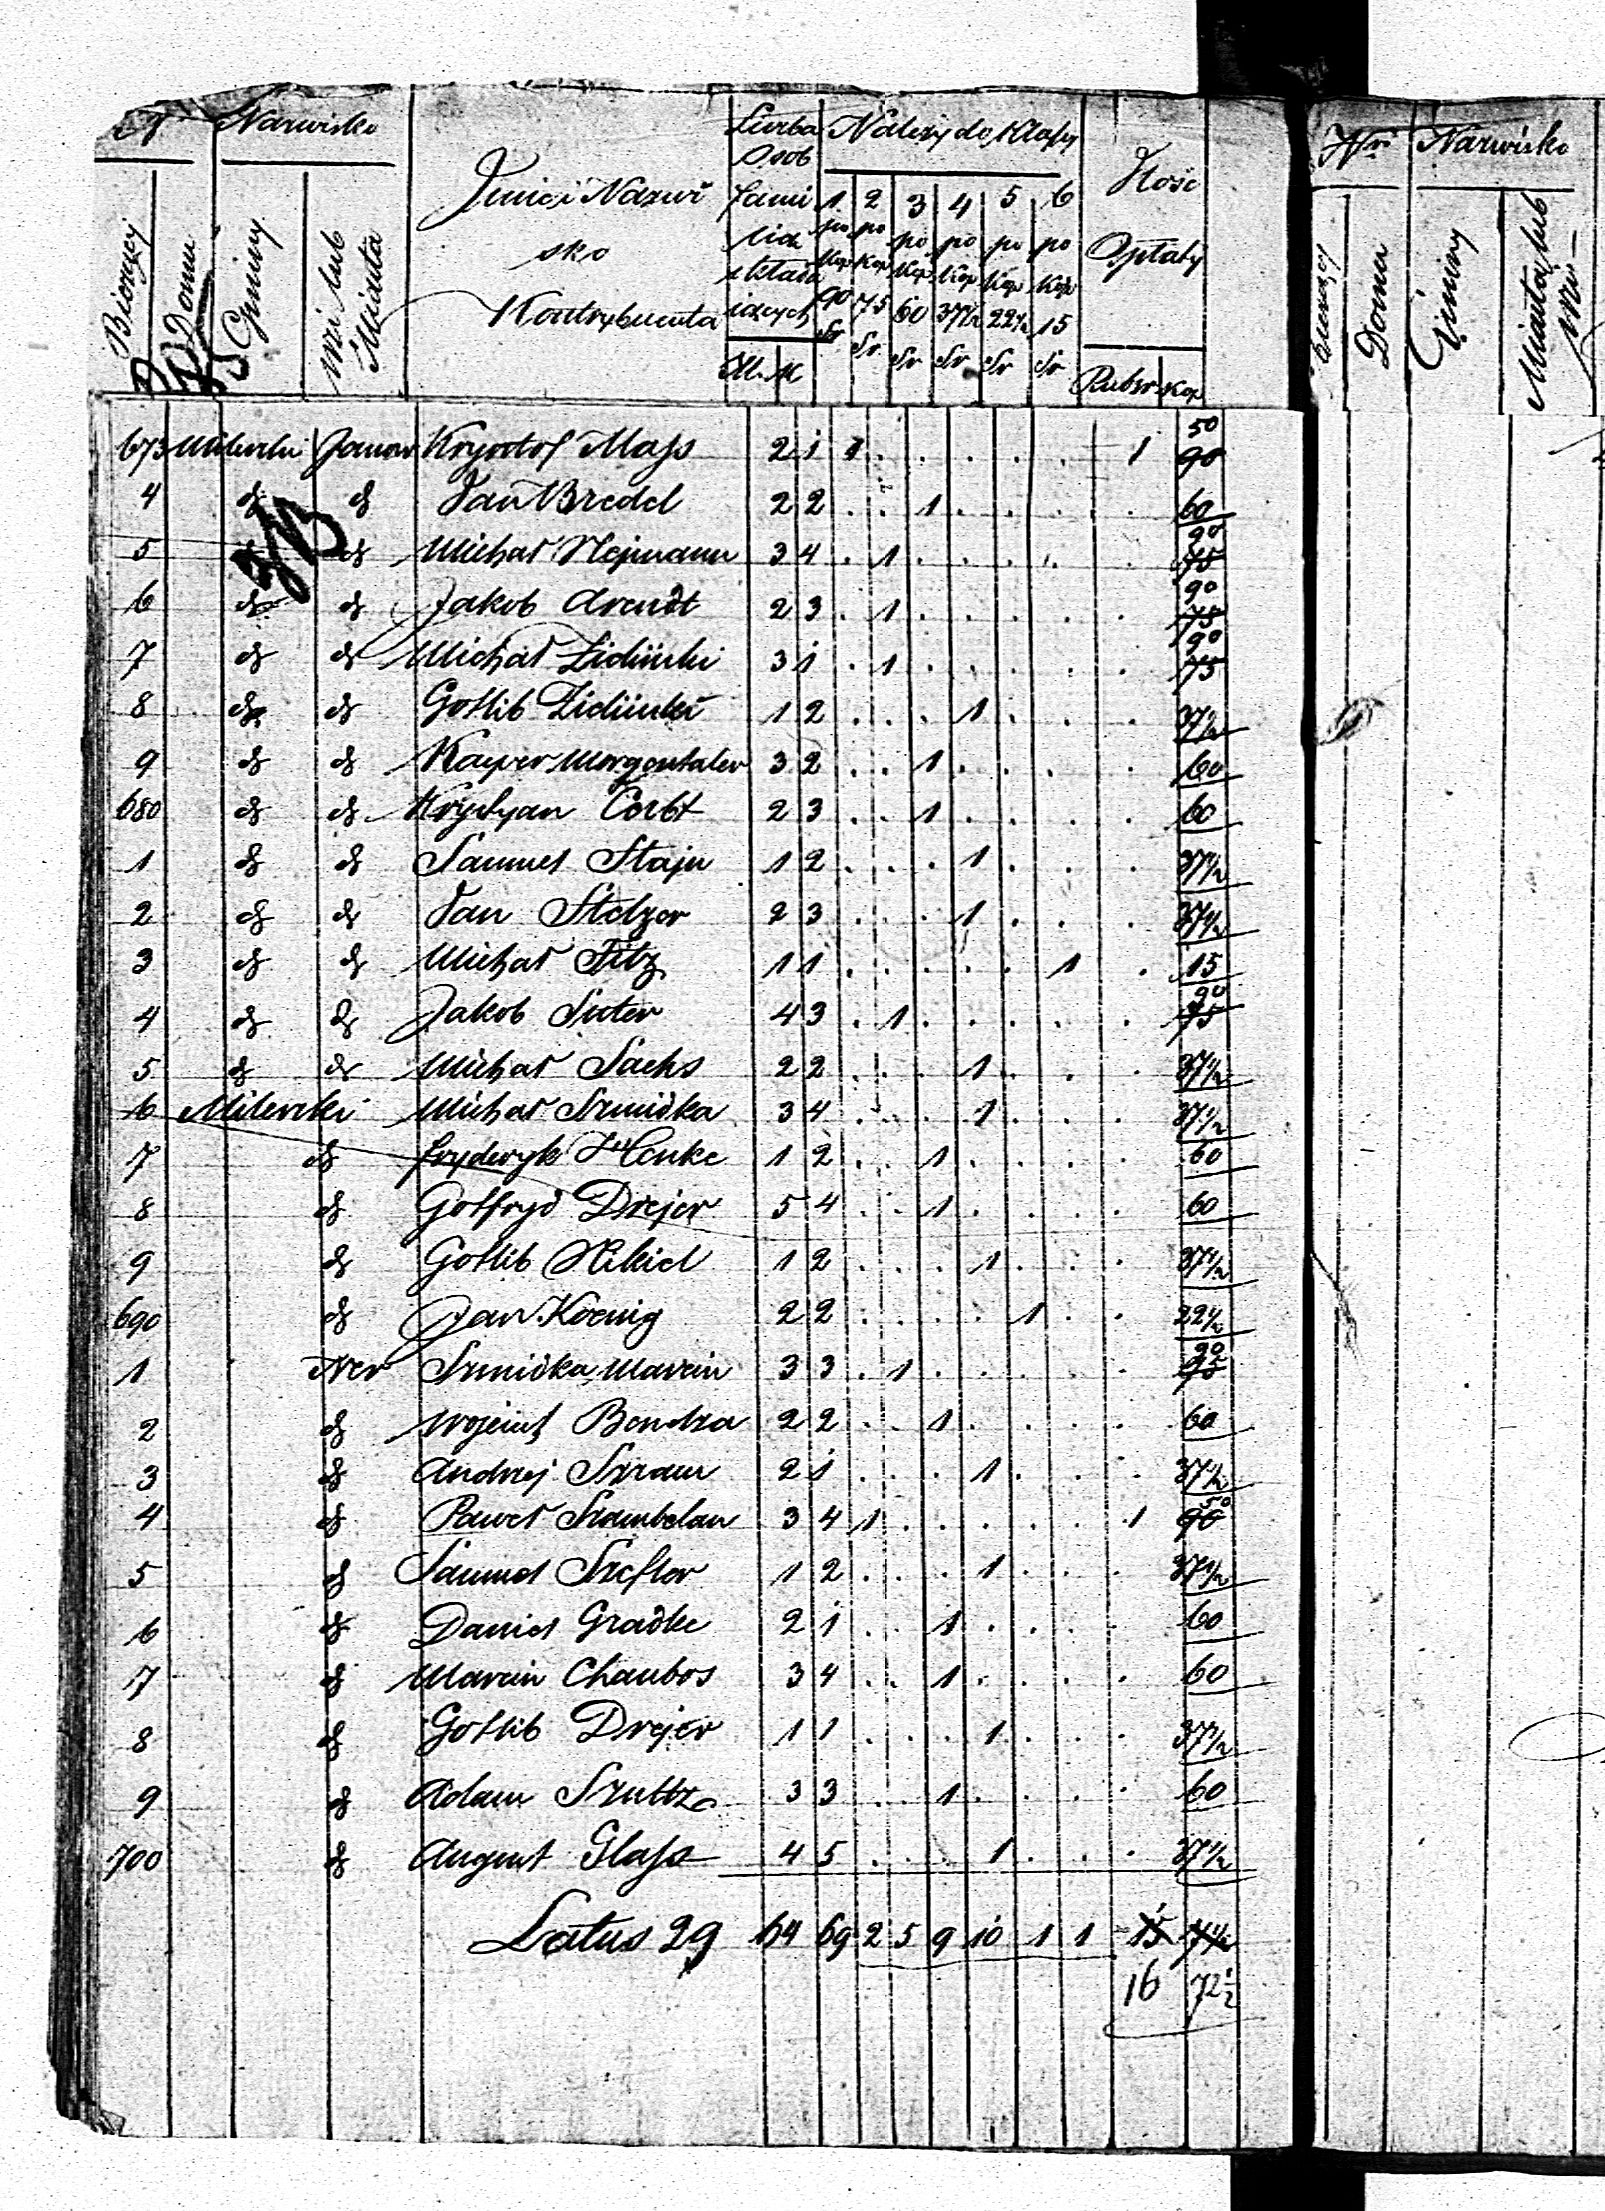 N Nazwisko Imie i Nazwisko Kontrybuenta Liczba Osob familią składaiących Należy do Klassy Ilość Opłaty
Bieżący Domu Gminy Wsi lub Miasta M. K. 1 po Kop 90 Sr 2 po Kop 75 Sr 3 po Kop 60 Sr 4 po Kop 37½ Sr 5 po Kop 22½ Sr 6 po Kop 15 Sr Rubsr Kop
673 Milewski Janow Krysztof Mass 2 1 1 . . . . . . 1 90 50
4 dº dº Jan Bredel 2 2 . . 1 . . . . 60
5 dº dº Michał Nejmann 3 4 . 1 . . . . . 75 90
6 dº dº Jakob Arendt 2 3 . 1 . . . . . 75 90
7 dº dº Michał 3 1 . 1 . . . . . 75 90
8 dº dº Gotlib 1 2 . . . 1 . . . 37½
9 dº dº Kacper Morgentaler 3 2 . . 1 . . . . 60
680 dº dº Krystyan 2 3 . . 1 . . . . 60
1 dº dº Samuel Stajn 1 2 . . . 1 . . . 37½
2 dº dº Jan Stelzer 2 3 . . . 1 . . . 37½
3 dº dº Michał Fitz 1 1 . . . . . 1 . 15
4 dº dº Jakob Suter 4 3 . 1 . . . . . 75 90
5 dº dº Michał Sachs 2 2 . . . 1 . . . 37½
6 Milewski Michał Szmidka 3 4 . . . 1 . . . 37½
7 dº Fryderyk Henke 1 2 . . 1 . . . . 60
8 dº Gotfryd Drejer 5 4 . . 1 . . . . 60
9 dº Gotlib Nikiel 1 2 . . . 1 . . . 37½
690 dº Jan Koenig 2 2 . . . . 1 . . 22½
1 Ner Szmidka Marcin 3 3 . 1 . . . . . 75 90
2 dº Wojciech Bendza 2 2 . . 1 . . . . 60
3 dº Andrzej Szram 2 1 . . . 1 . . . 37½
4 dº Paweł Szambelan 3 4 1 . . . . . . 1 90 50
5 dº Samuel Szefler 1 2 . . . 1 . . . 37½
6 dº Daniel Gradke 2 1 . . 1 . . . . 60
7 dº Marcin Chaubos 3 4 . . 1 . . . . 60
8 dº Gotlib Drejer 1 1 . . . 1 . . . 37½
9 dº Adam Szultz 3 3 . . 1 . . . . 60
700 dº August Glass 4 5 . . . 1 . . . 37½
Latus 29 64 69 2 5 9 10 1 1 15
16 72½
Nri Nazwisko
Bieżący Domu Gminy Miasta lub Wsi